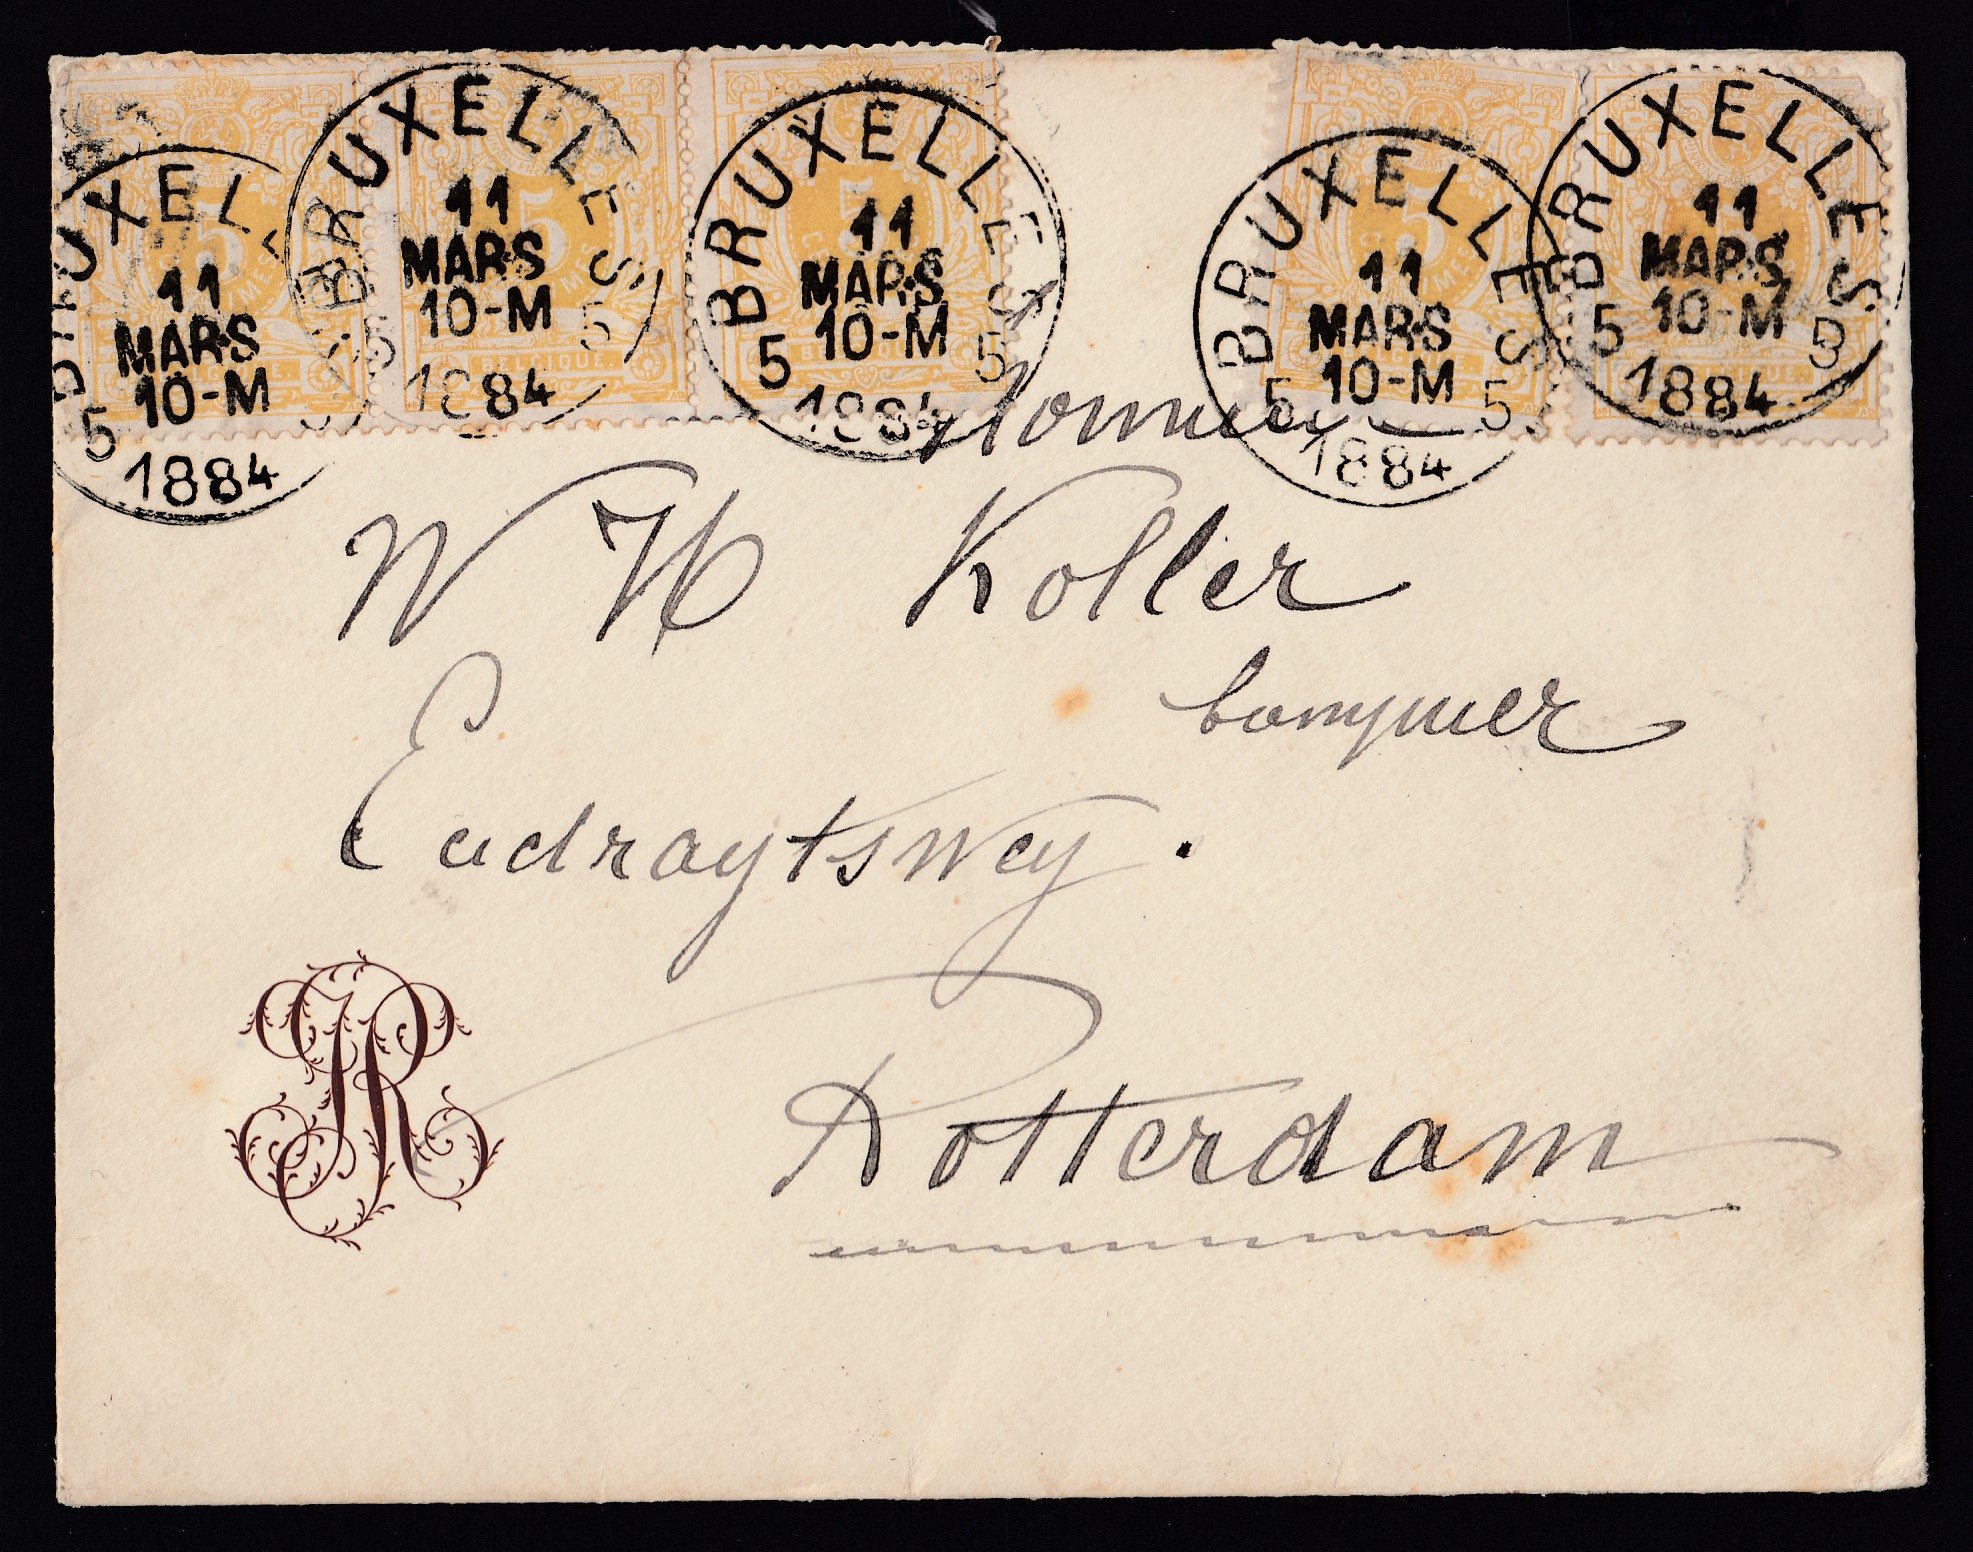 BRUXEL
11
MARS
10-M
5
1884
BRUXELLES
11
MARS
10-M
5 5
1884
BELGIQUE
BRUXELLES
11
MARS
10-M
5 5
1884
BRUXELLES
11
MARS
10-M
5 5
1884
BRUXELLES
11
MARS
10-M
5 5
1884
Monsieur
W H Koller
banquier
Eendraytswey.
Rotterdam
JR